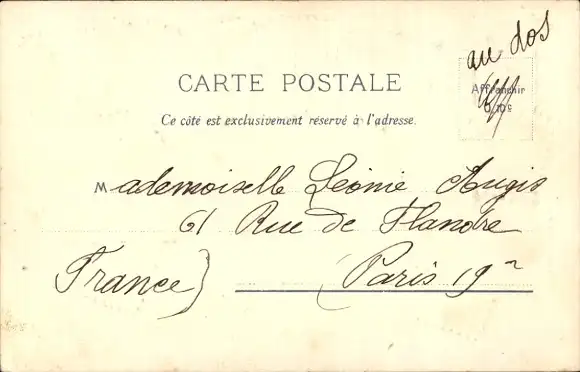 au dos
CARTE POSTALE
Affranchir
0,10c
Ce côté est exclusivement réservé à l'adresse.
Mademoiselle Léonie Augis
61 Rue de Flandre
France) (Paris 19e